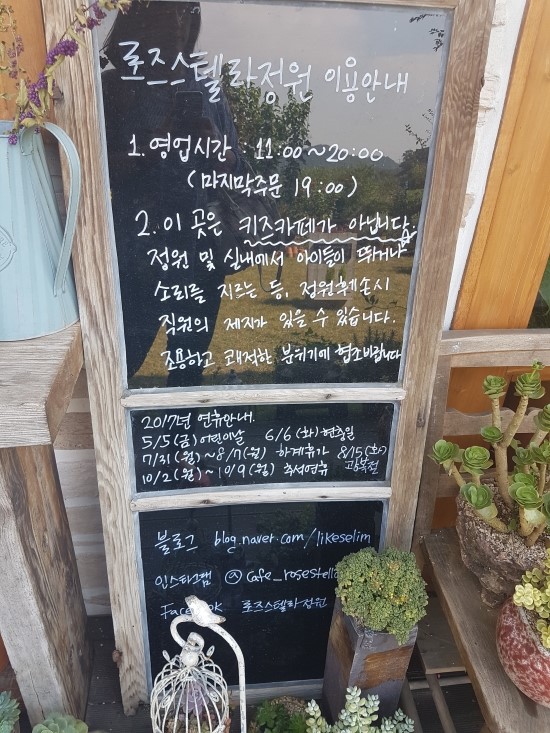 로즈스텔라정원 이용안내
1. 영업시간 : 11:00~20:00
(마지막주문 19:00)
2. 이 곳은 키즈카페가 아닙니다.
정원 및 실내에서 아이들이 뛰거나
소리를 지르는 등, 정원훼손시
직원의 제지가 있을 수 있습니다.
조용하고 쾌적한 분위기에 협조바랍니다
2017년 연휴안내.
5/5(금)어린이날 6/6(화)현충일
7/31(월)~8/7(월) 하계휴가 8/15(화)
10/2(월)~10/9(월) 추석연휴 광복절
블로그 blog.naver.com/likeselim
인스타그램 @cafe_rosestella
Facebook 로즈스텔라정원